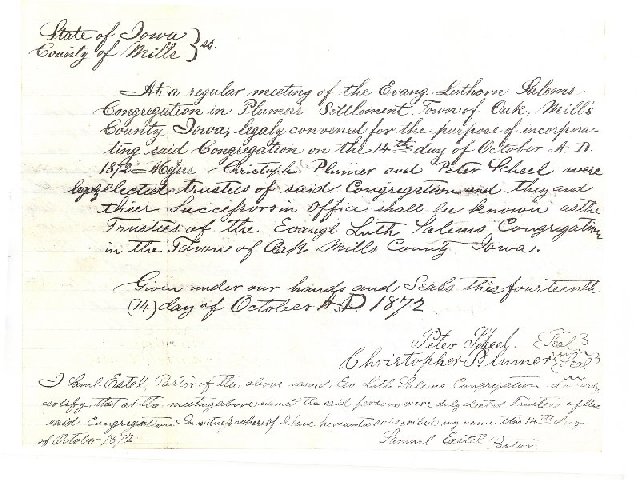 State of Iowa
County of Mills } ss.
At a regular meeting of the Evang. Luthern Salems
Congregation in Plumers Settlement Town of Oak, Mills
County, Iowa, legaly convened for the purpose of incorpora-
ting said Congregation on the 14th day of October A. D.
1872 Christoph Plumer and Peter Scheel were
legaly elected trustees of said Congregation and they and
thier Successors in Office shall be known as the
Trustees of the Evang'l Luth Salems Congregation
in the Town of Oak Mills County Iowa.
Given under our hands and Seals this fourteenth
(14) day of October A.D 1872
Peter Scheel Seal
Christopher Plumer Seal
I Saml Pastor of the above named Ev Luth Salems Congregation do
certify, that at the meeting above named the said persons were duly elected Trustees of the
said Congregation In witness whereof I have hereunto subscribed my name this 14th day
of October 1872
Samuel Pastor